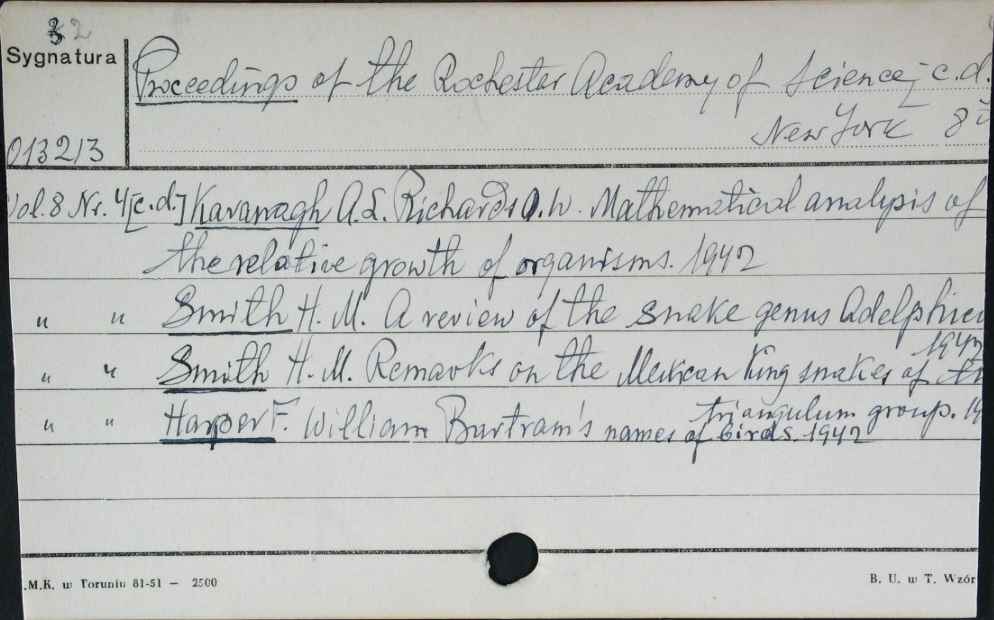 32
Sygnatura
Proceedings of the Rochester Academy of Science - c.d.
New York 8°
013213
Vol. 8 Nr. 4 [c.d.] Kavanagh A.L. Richards O.W. Mathematical analysis of
the relative growth of organisms. 1942
" " Smith H. M. A review of the snake genus Adelphicos
1942
" " Smith H. M. Remarks on the Mexican King snakes of the
triangulum group. 19
" " Harper F. William Bartram's names of birds. 1942
.M.K. w Toruniu 81-51 — 2500
B. U. w T. Wzór